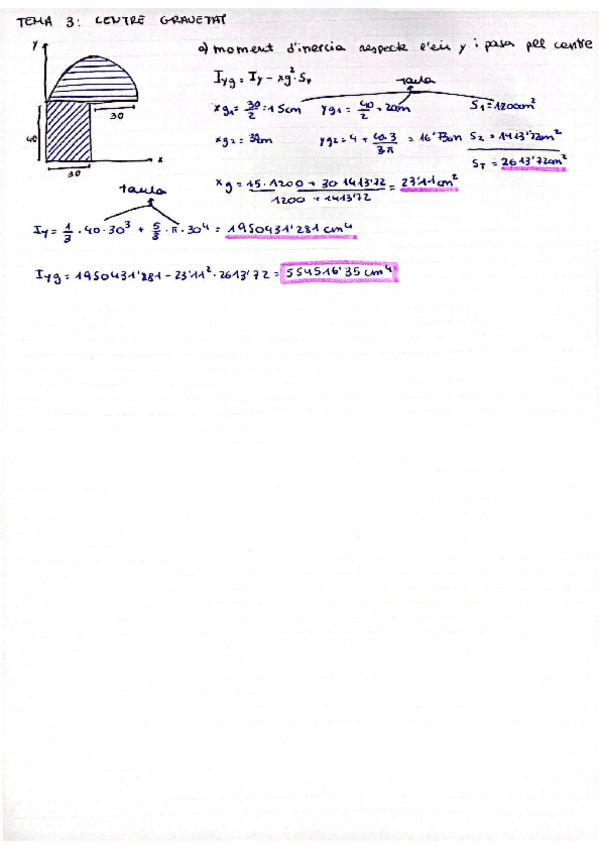 TEMA 3: CENTRE GRAVETAT
a) moment d'inercia respecte l'eix y i passa pel centre
y
Iyg = Iy - xg²·S
taula
xg1 = 30/2 = 15cm yg1 = 40/2 = 20cm S1 = 1200cm²
30
40
xg2 = yg2 = 4 + S2 = 1413'72cm²
x
30
ST = 2613'72cm²
xg = 15·1200 + 30·1413'72 / 1200 + 1413'72 = 23'11 cm²
taula
Iy = 1/3 · 40·30³ + 5/8 · π · 30⁴ = 1950431'281 cm⁴
Iyg = 1950431'281 - 23'11² · 2613'72 = 554516'35 cm⁴